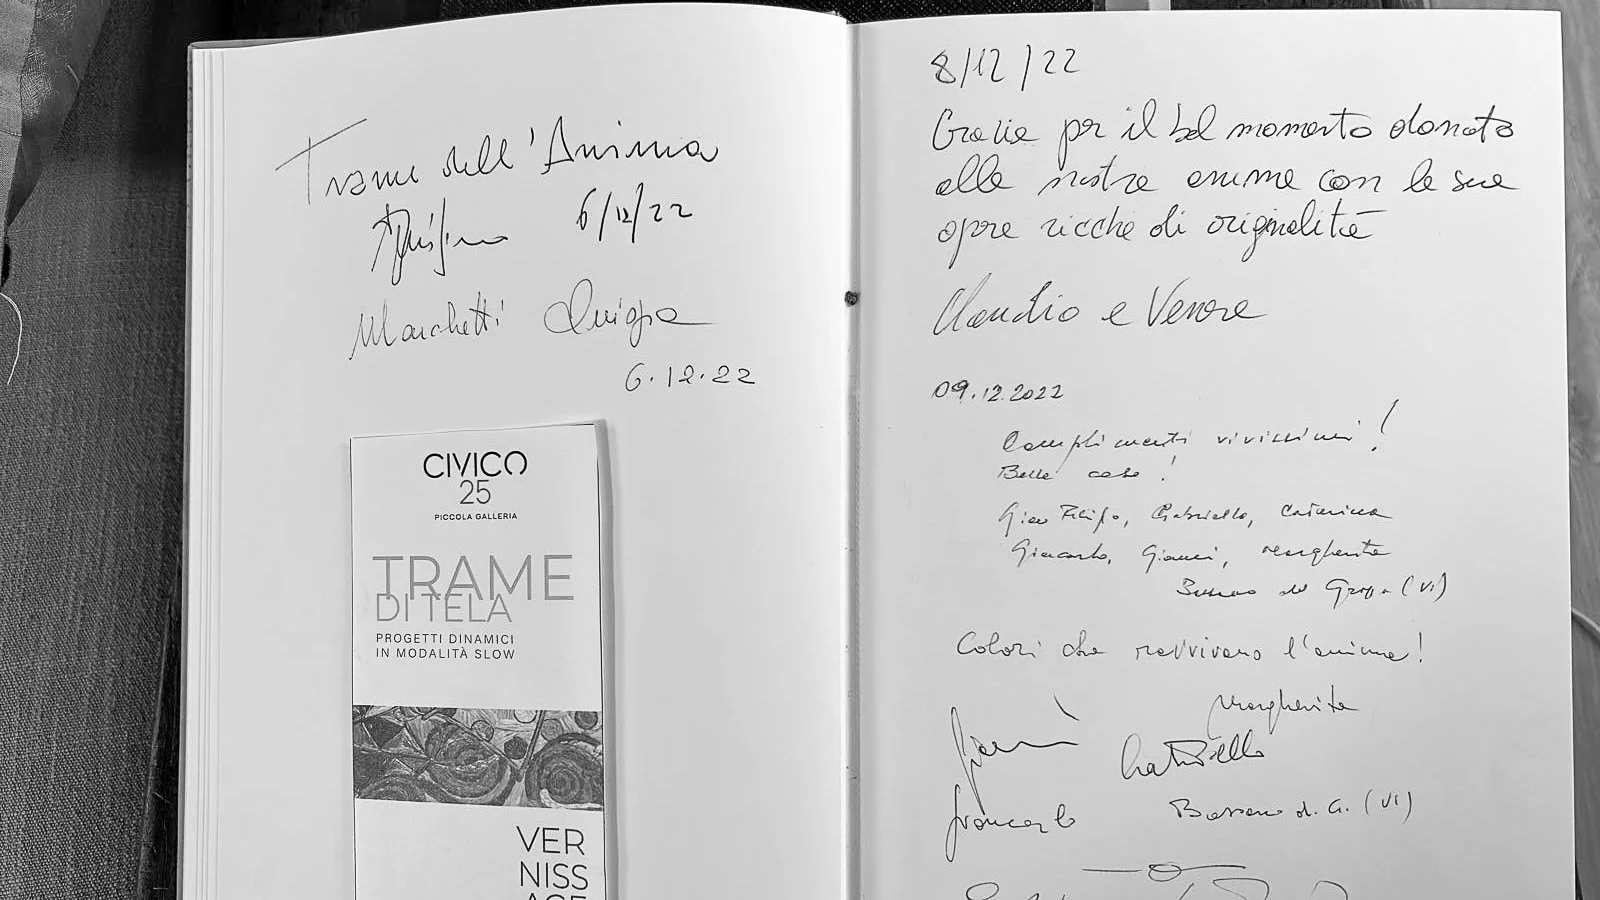 Trame dell'Anima
6/12/22
Marchetti
6.12.22
CIVICO
25
PICCOLA GALLERIA
TRAME
DI TELA
PROGETTI DINAMICI
IN MODALITÀ SLOW
VER
NISS
AGE
8/12/22
Grazie per il bel momento donato
alle nostre anime con le sue
opere ricche di originalità
Claudio e Venere
09.12.2022
Complimenti vivissimi!
Belle cose!
Gian Filippo, Gabriella, Caterina
Giancarlo, Gianni, Margherita
Bassano del Grappa (VI)
Colori che ravvivano l'anima!
Margherita
Gianni
Gabriella
Giancarlo
Bassano d. G. (VI)